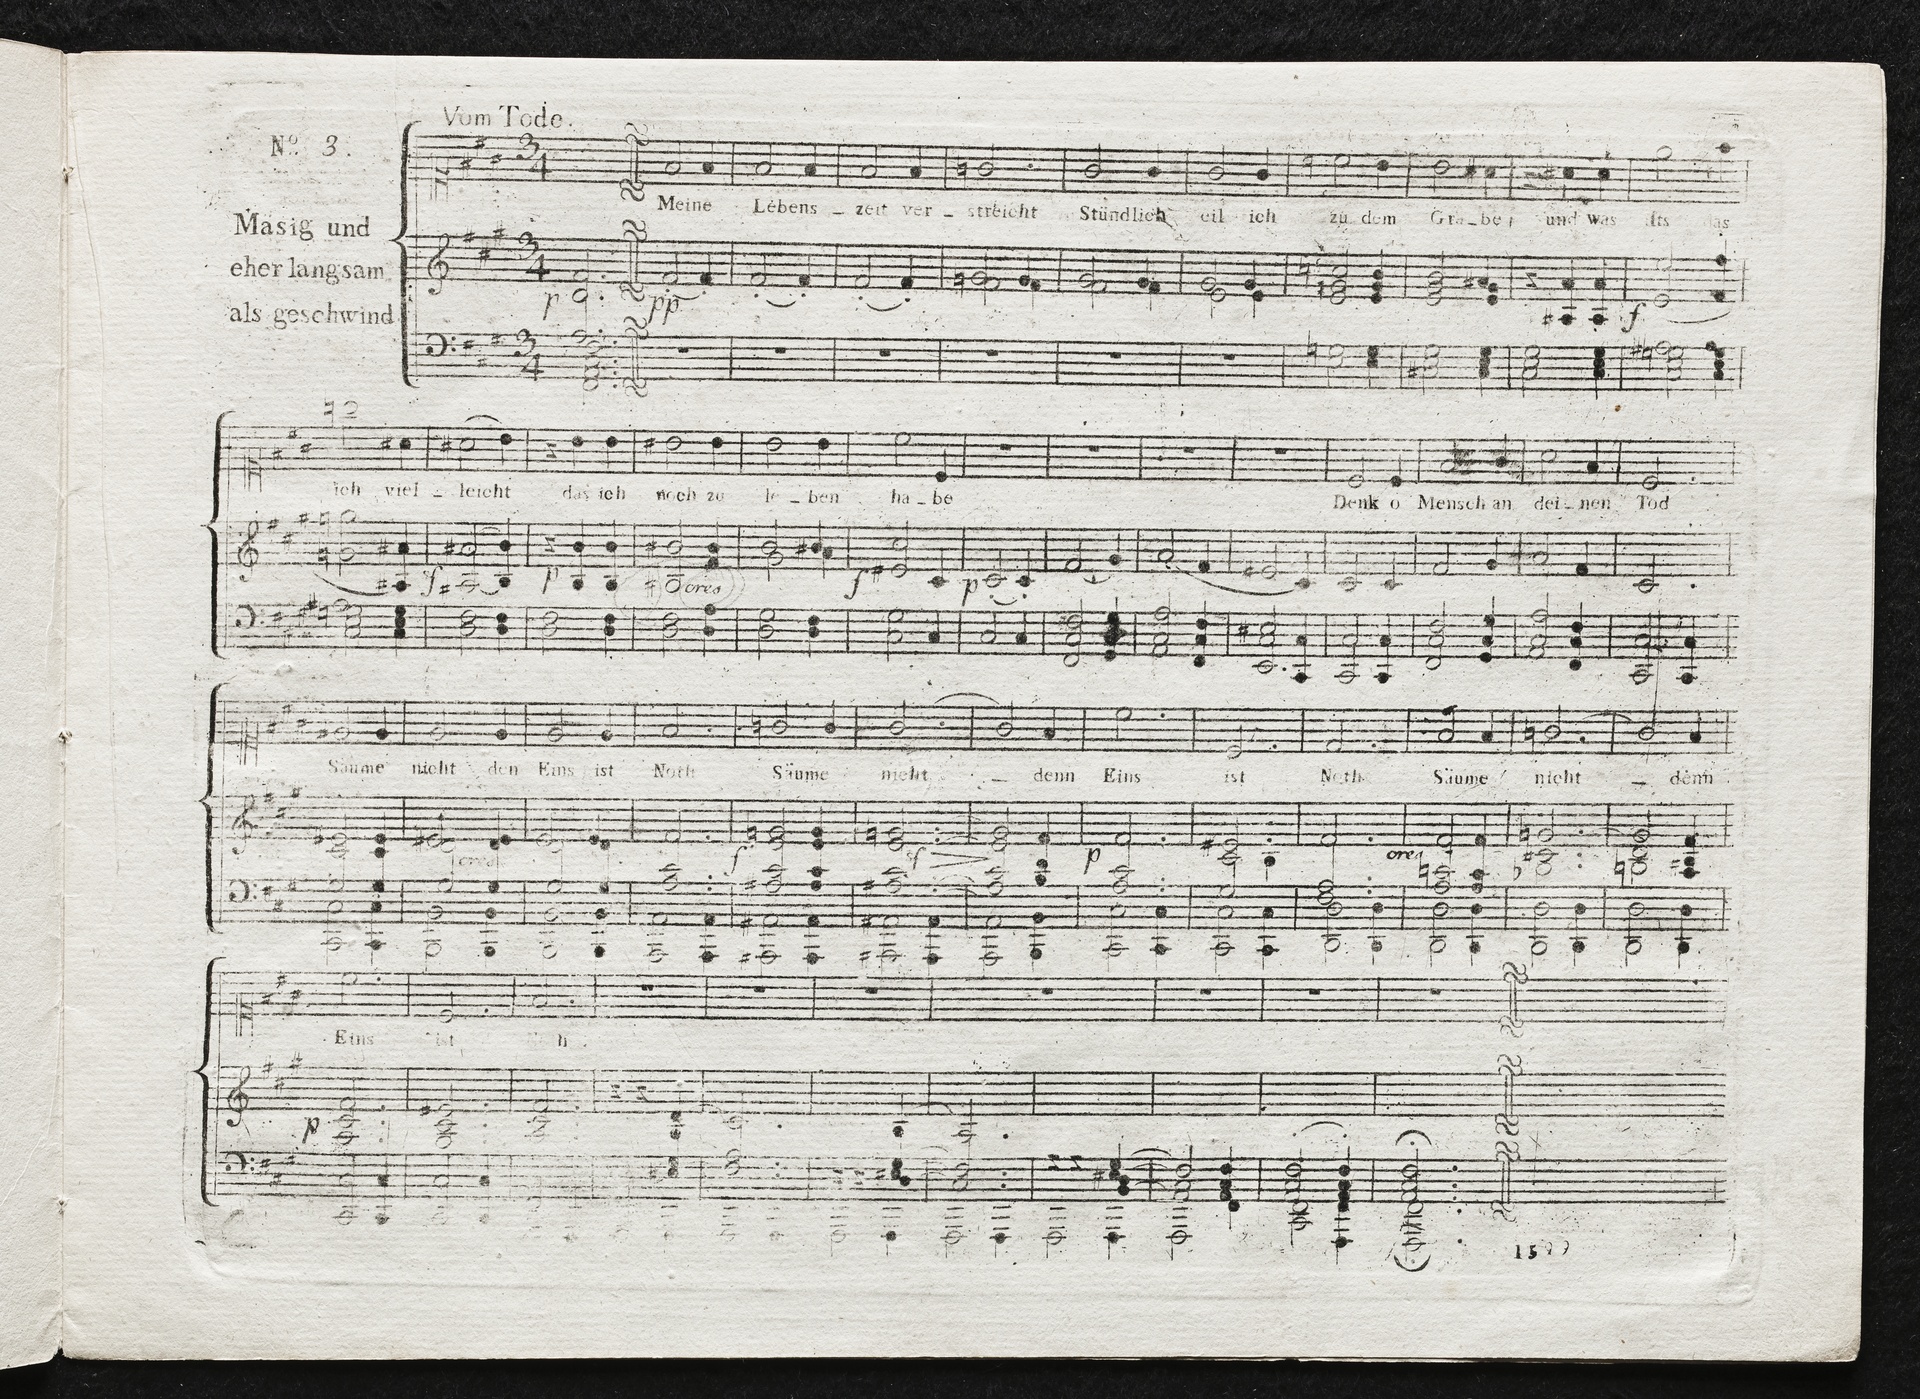 Vom Tode.
Nº 3.
Mäsig und
eher langsam
als geschwind
Meine Lebens _ zeit ver _ streicht Stündlich eil ich zu dem Gra _ be, und was ists das
p pp f
ich viel _ leicht das ich noch zu le _ ben ha _ be Denk o Mensch an dei _ nen Tod
f p cres f p
Säume nicht den Eins ist Noth Säume nicht _ denn Eins ist Noth Säume nicht _ denn
cres f f p cres
Eins ist
p